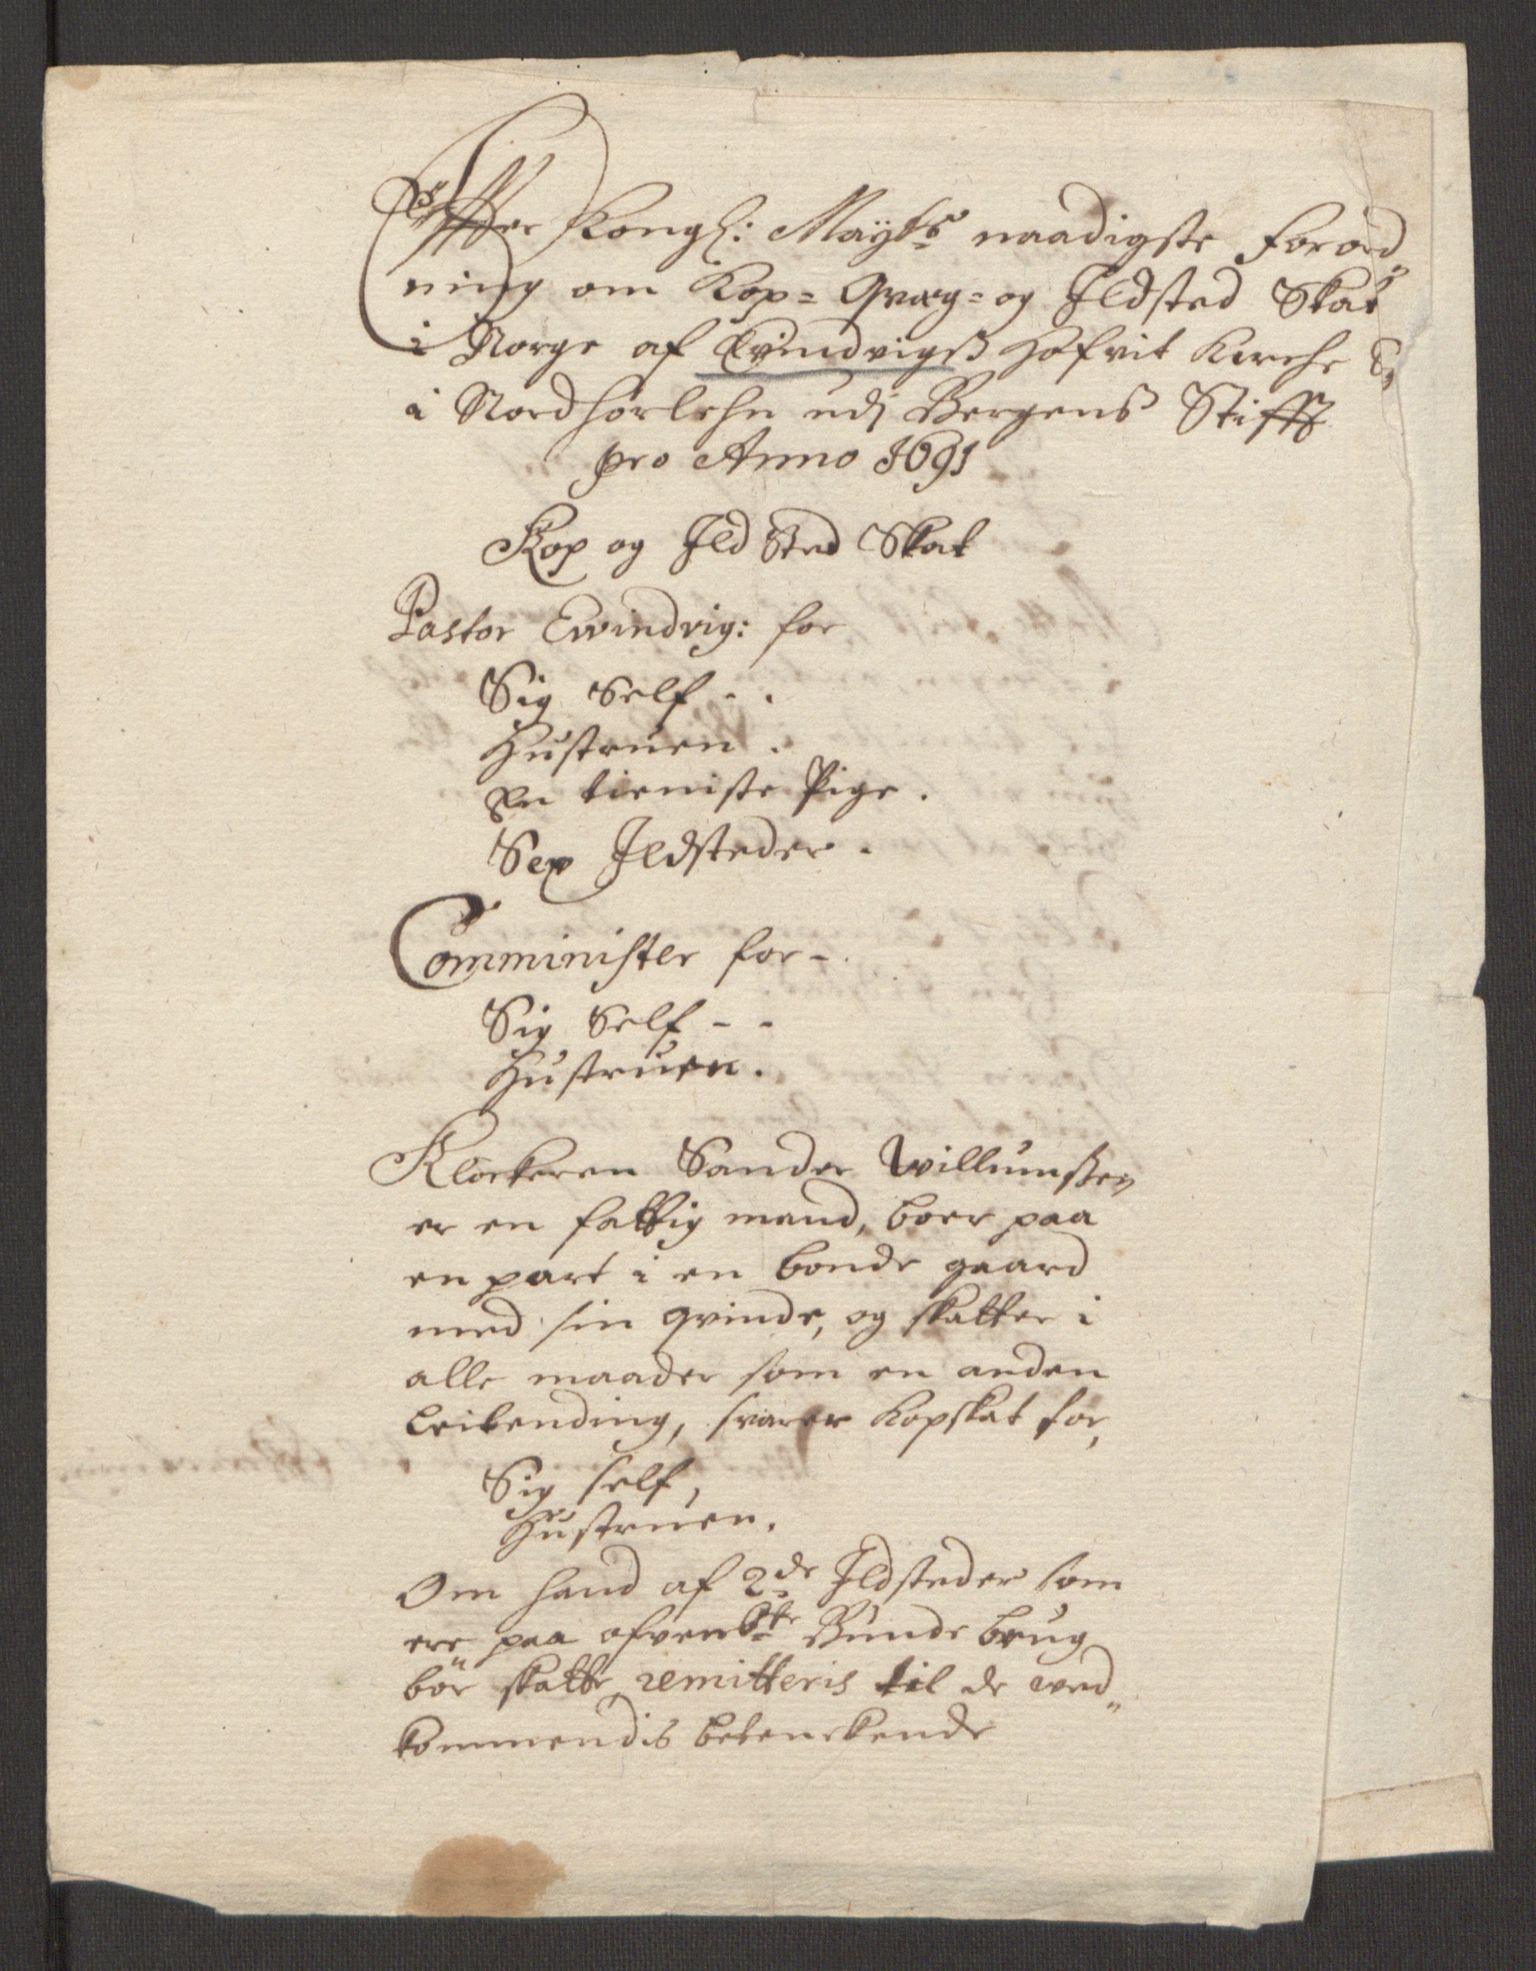 Effter Kongl: Mayts naadigste Forord„
ning om Kop= Qvæg= og Ildsted Skat
i Norge af Evindvigs Hofvit Kirche
i Nordhorlehn udj Bergens Stifft
pro Anno 1691
Kop og Ild Sted Skat
Pastor Evindvig: for
Sig Self - .
Hustruen .
En tieniste Pige .
Sex Ildsteder .
Comminister for - .
Sig Self - -
Hustruen .
Klockeren Sander Willumsen
er en fattig mand, boer paa
en part i en bonde gaard
med sin qvinde, og skatter i
alle maader som en anden
leilending, svarer Kopskat for,
Sig self,
Hustruen.
Om hand af 2de Ildsteder som
ere paa Bunde brug
bör skatte, remitteris til de ved„
kommendis betenckende